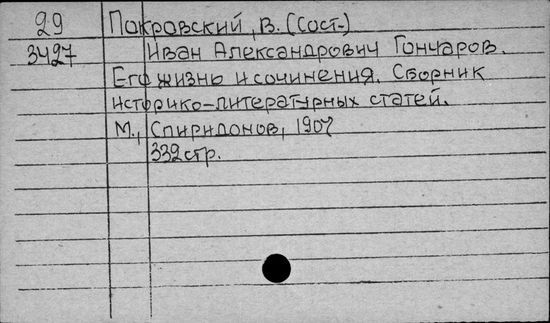 29 Покровский, В. (Сост.)
3427 Иван Александрович Гончаров.
Его жизнь и сочинения. Сборник
историко-литературных статей.
М., Спиридонов, 1907
332 стр.